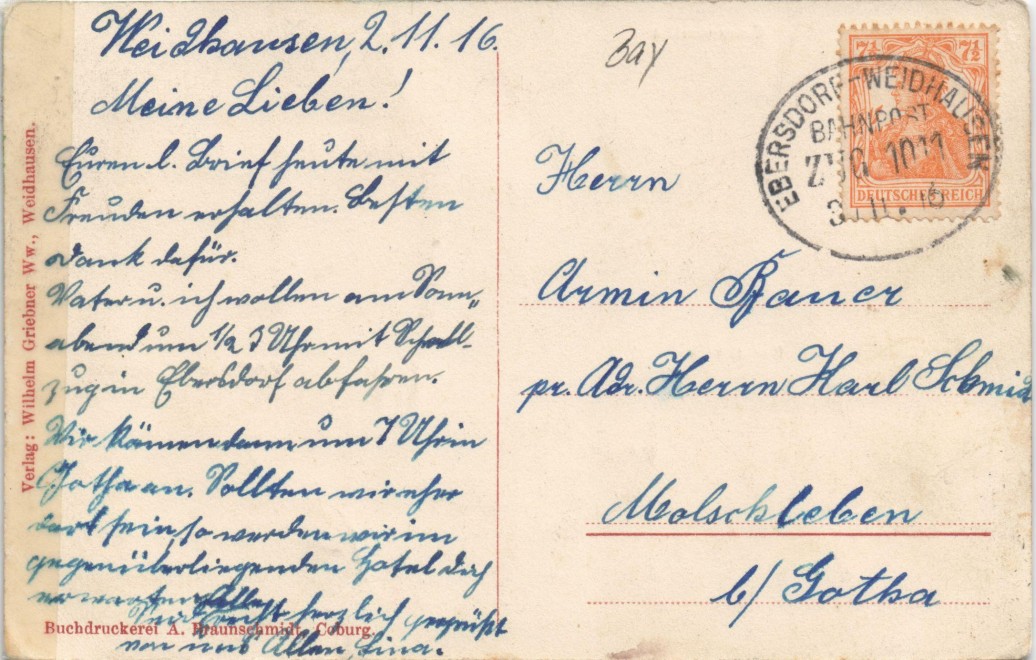 Weidhausen, 2.11.16.
Meine Lieben!
Euren l. Brief heute mit
Freuden erhalten. Besten
Dank dafür.
Vater u. ich wollen am Sonn„
abend um 1/2 3 Uhr mit Schnell-
zug in Ebersdorf abfahren.
Wir kämen dann um 7 Uhr in
Gotha an. Sollten wir eher
dort sein, so werden wir im
gegenüberliegenden Hotel Dich
erwarten.
Seid recht herzlich gegrüßt
von uns Allen, Lina.
Verlag: Wilhelm Griebner Ww., Weidhausen.
Buchdruckerei A. Braunschmidt, Coburg.
Bay
7½ 7½
DEUTSCHES REICH
EBERSDORF-WEIDHAUSEN
BAHNPOST
ZUG 1011
Herrn
Armin Bauer
pr. Adr. Herrn Karl Schmid
Molschleben
b/ Gotha